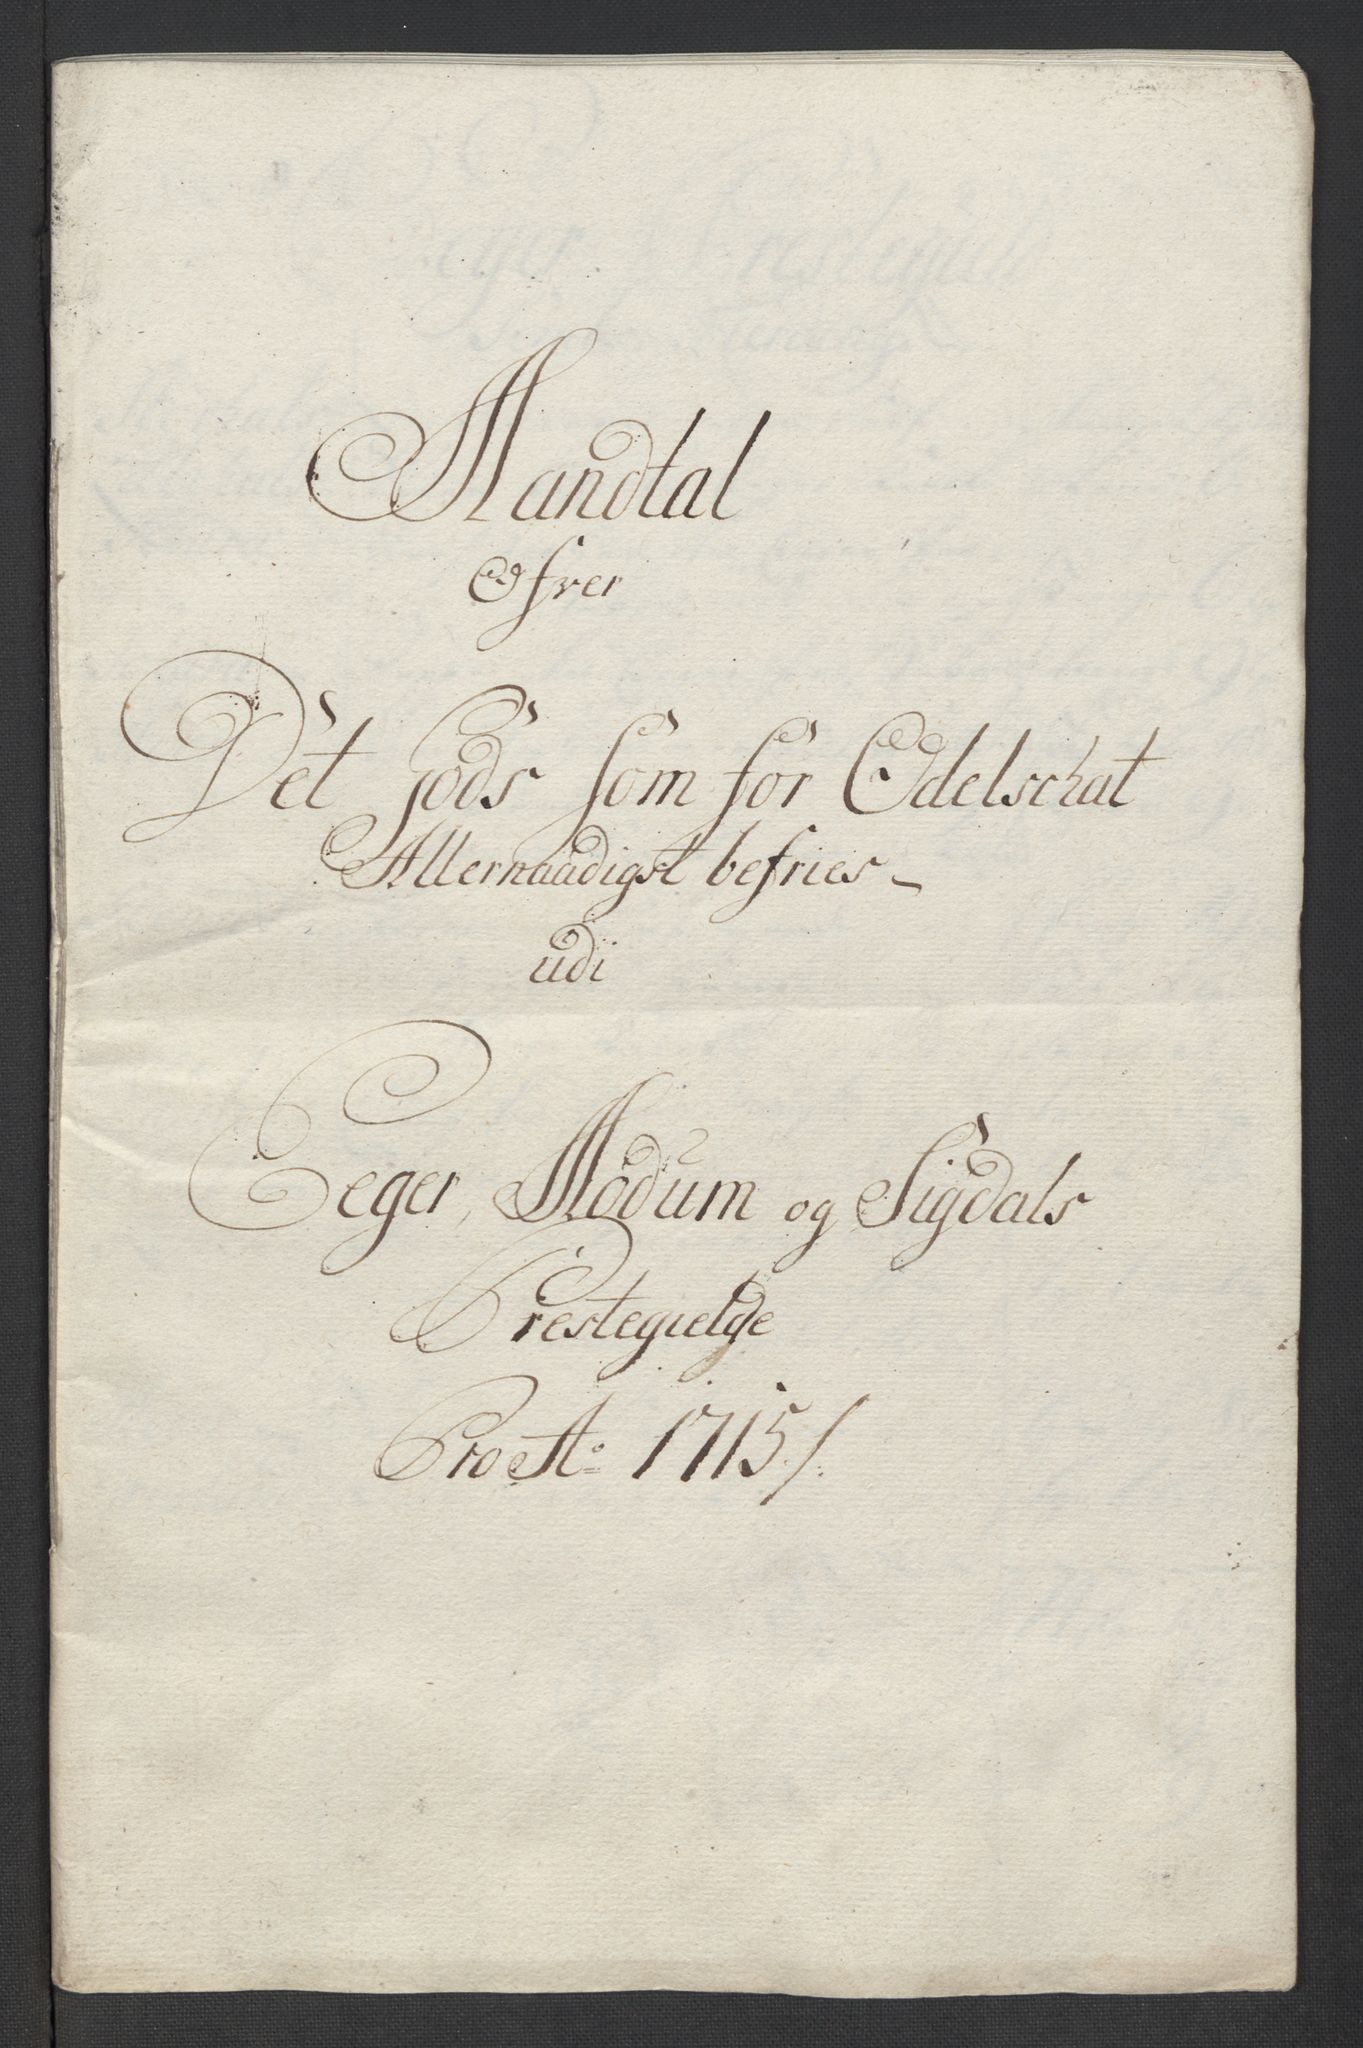 Mandtal
Ofver
Det gods som for Odelschat
Allernaadigst befries
udi
Eeger, Modum og Sigdals
Prestegielde
Pro Ao 1715/.